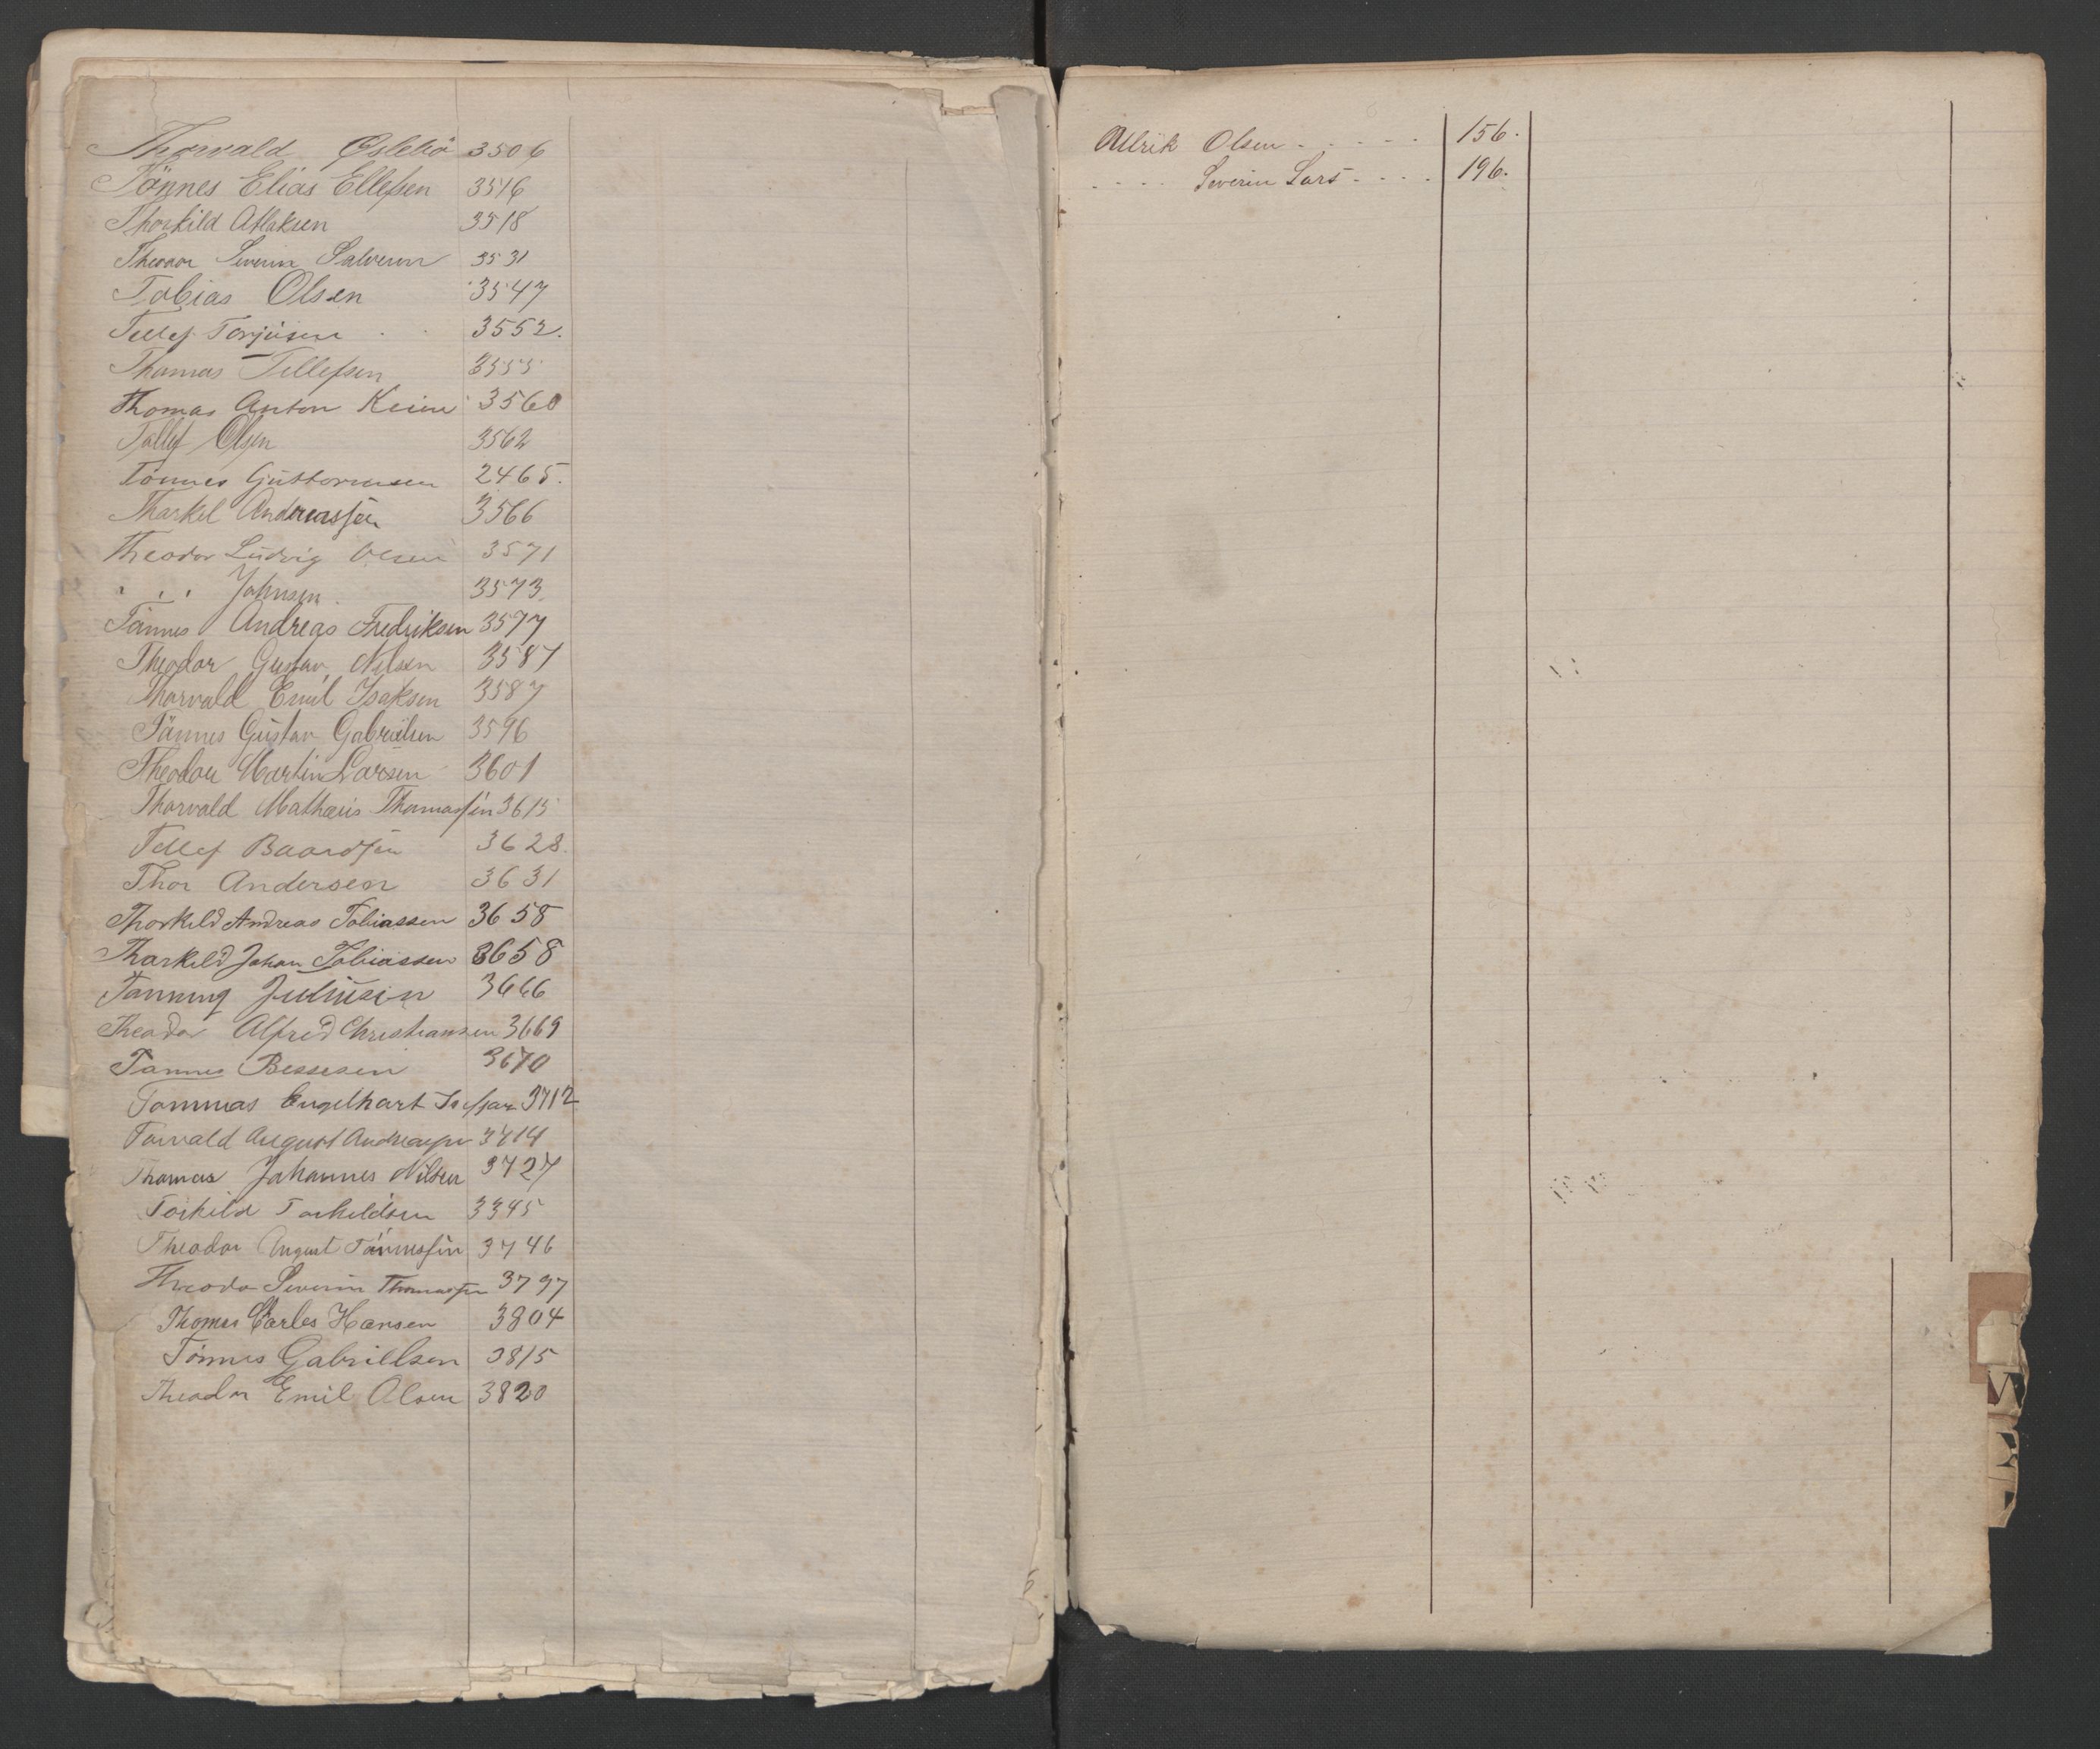 Thorvald Øslebö 3506
Tönnes Elias Ellefsen 3516
Thorkild Atlaksen 3518
Theodor Severin Salvesen 3531
Tobias Olsen 3547
Tellef Torjusen 3552.
Thomas Tellefsen 3555
Thomas Anton Keim 3560
Tallef Olsen 3562
Tönnes Guttormsen 2465.
Tharkel Andreassen 3566
Theodor Ludvig Olsen 3571
" " " Johnsen 3573
Tönnes Andreas Fredriksen 3577
Theodor Gustav Nilsen 3587
Thorvald Emil Isaksen 3587
Tönnes Gustav Gabrielsen 3596
Theodor Martin Larsen 3601
Thorvald Mathæus Thomassen 3615
Tellef Baardsen 3628.
Thor Andersen 3631
Thorkild Andreas Tobiassen 3658
Tharkild Johan Tobiassen 3658
Tönning Juliusen 3666
Theodor Alfred Christiansen 3669
Tønnes Bessesen 3670
Tommas Engelhart 3712
Torvald August Andreasen 3714
Thomas Johannes Nilsen 3727
Torkild Torkeldsen 3345
Theodor August Tönnessen 3746
Theodor Severin Thomassen 3797
Thomas Carles Hansen 3804
Tönnes Gabrielsen 3815
Theodor Emil Olsen 3820
Ullrik Olsen - - - - - 156.
- - - - Severin Lars - - - - 196.
W